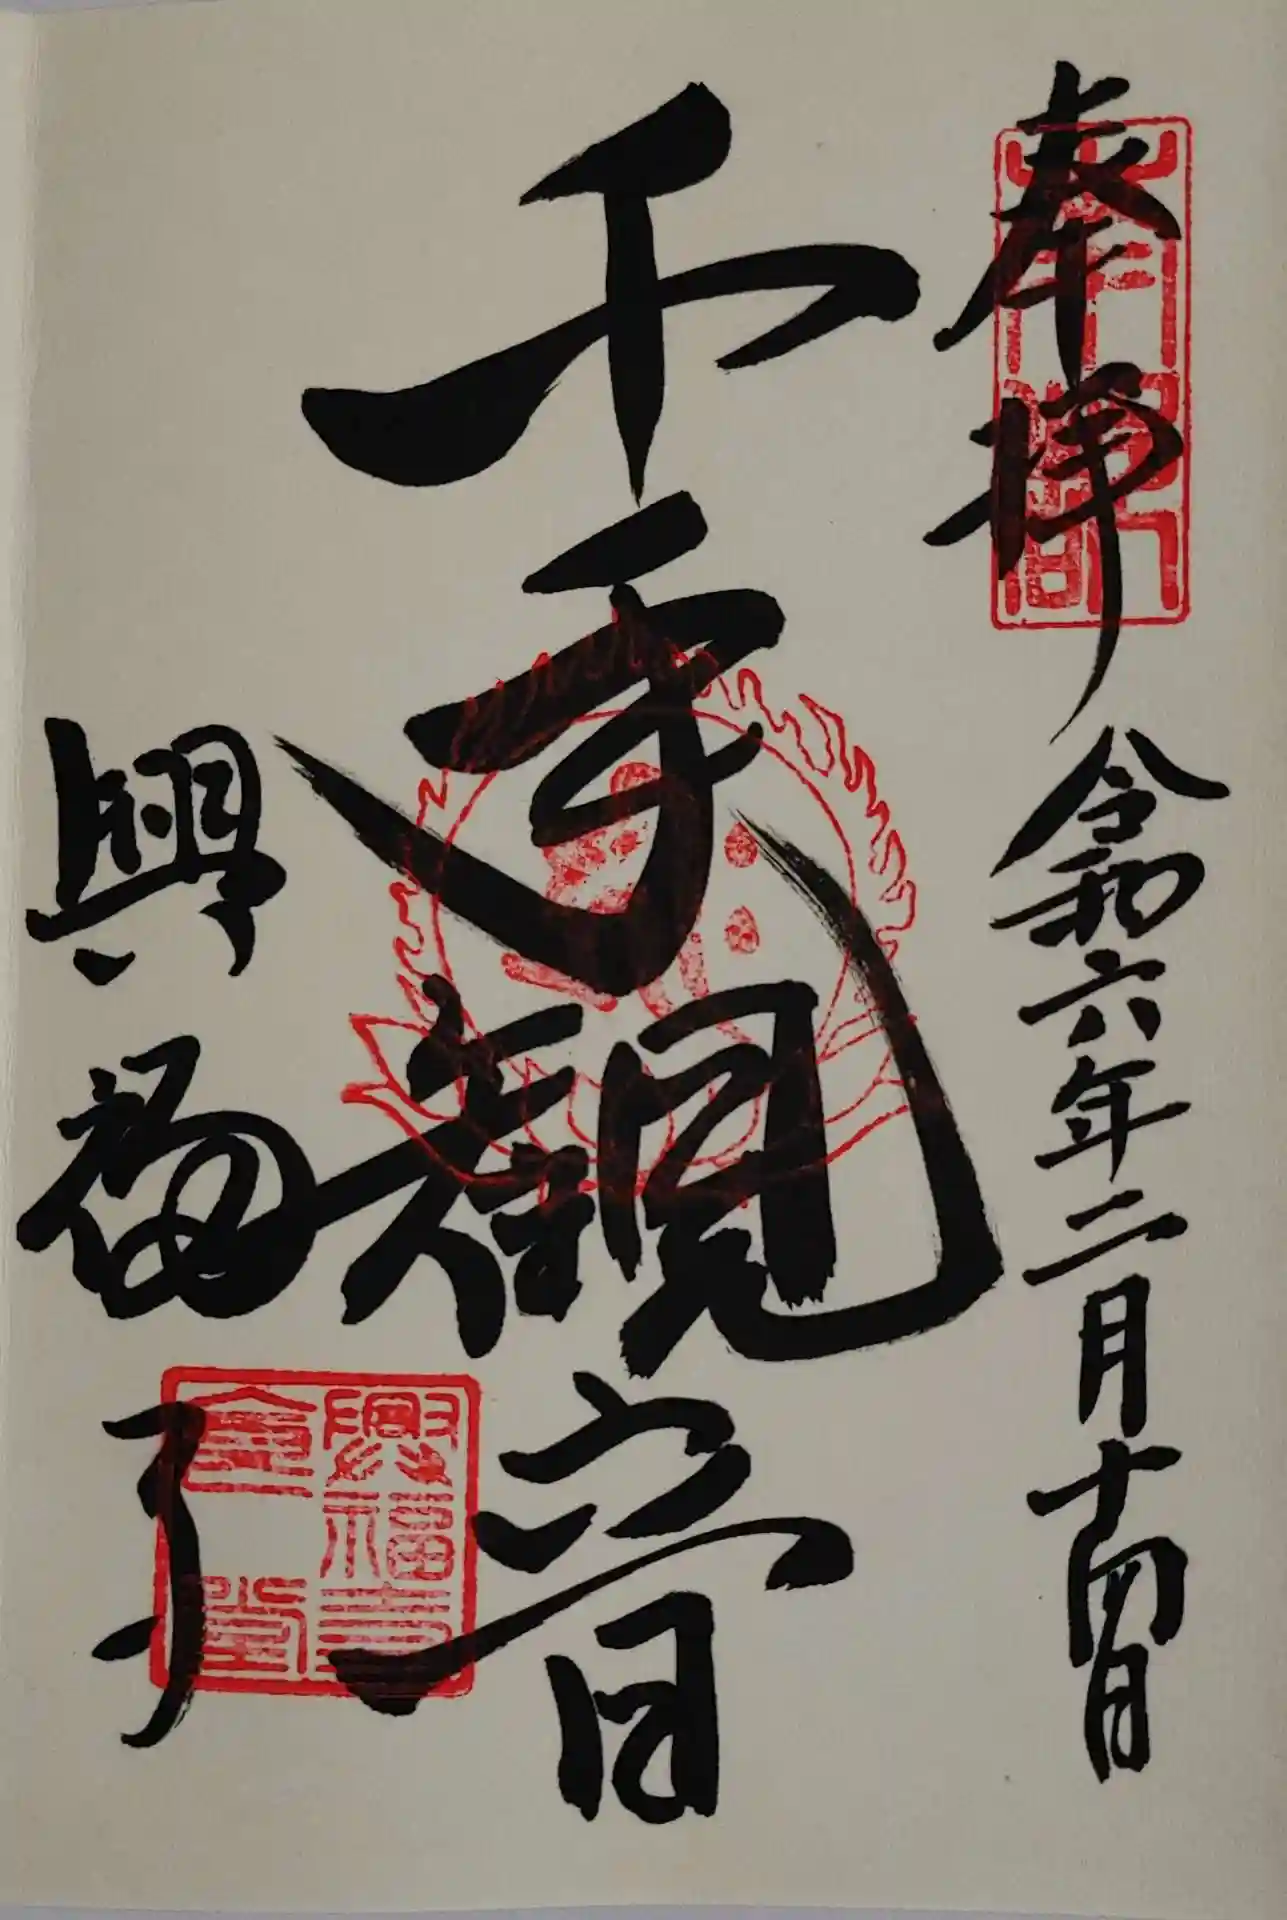 奉拝
令和六年二月十四日
千手観音
興福寺
興福寺
金堂